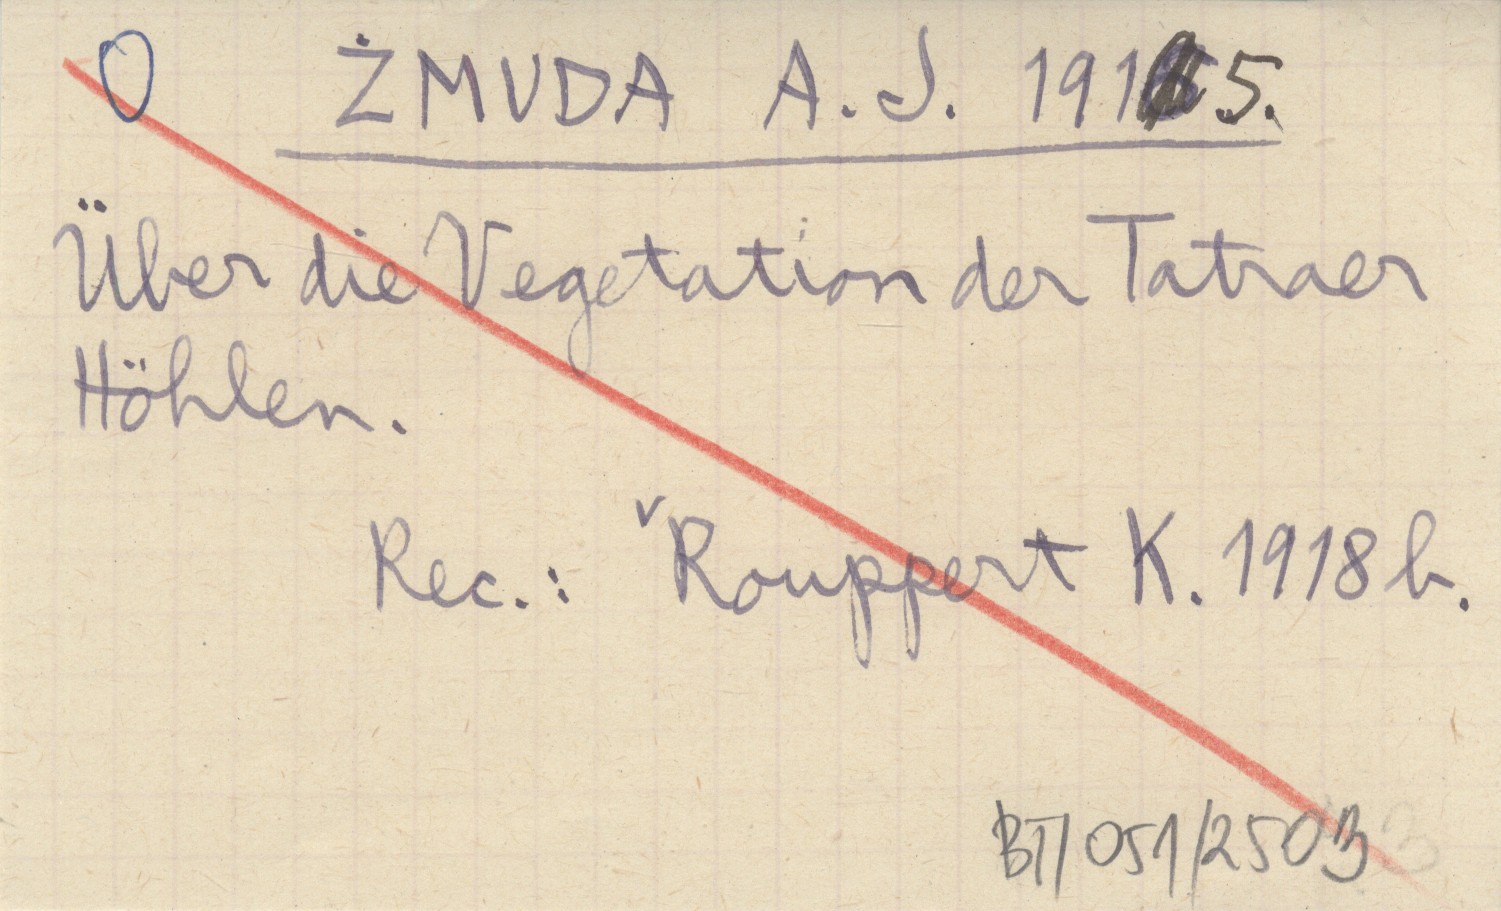 O ŻMUDA A. J. 1915.
Über die Vegetation der Tatraer
Höhlen.
Rec.: ᵛRouppert K. 1918 b.
BT/051/2503